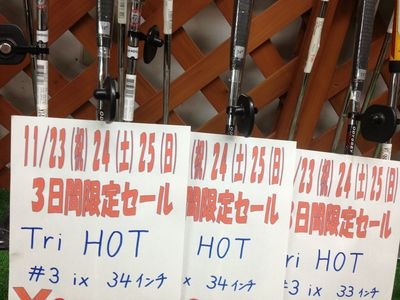 11/23(祝)24(土)25(日)
3日間限定セール
Tri HOT
#3 ix 34インチ
(祝)24(土)25(日)
間限定セール
HOT
x 34インチ
/23(祝)24(土)25(日)
3日間限定セール
ri HOT
3 ix 33インチ